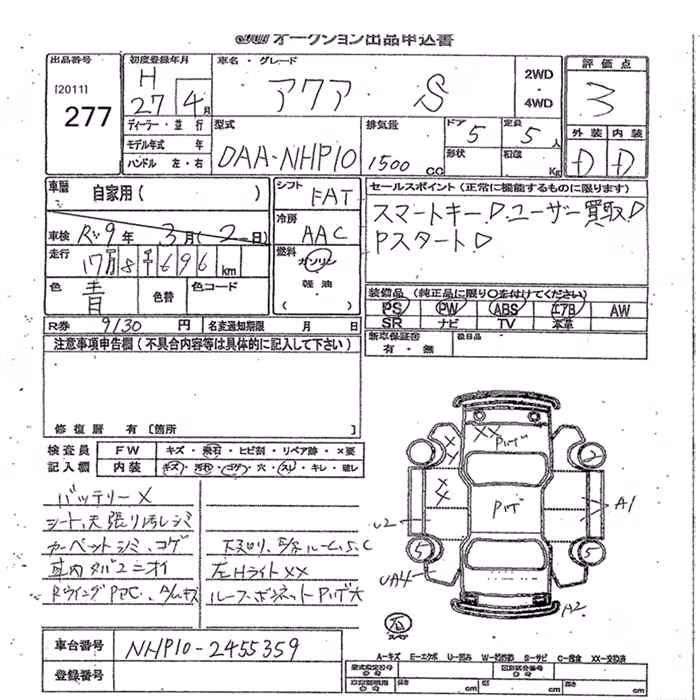 JU オークション出品申込書
出品番号
[2011]
277
初度登録年月
H
27 4月
車名・グレード
アクア S
2WD
・
4WD
評価点
3
外装 内装
D D
ディーラー・並行
モデル年式 年
ハンドル 左・右
型式
DAA-NHP10
排気量
1500 CC
ドア 5
形状
定員 5人
積載 Kg
車歴 自家用( )
車検 R 9年 3月( 2 日)
走行 17万8千696km
色 青
色替
色コード
シフト
FAT
冷房
AAC
燃料
ガソリン
軽油
( )
セールスポイント(正常に機能するものに限ります)
スマートキー!ユーザー買取!
Pスタート!
装備品(純正品に限り○を付けてください)
PS PW ABS エアB AW
SR ナビ TV 本革
新車保証書
有・無
後日品
R券 9130 円
名変通知期限 月 日
注意事項申告欄(不具合内容等は具体的に記入して下さい)
修復歴 有 [箇所
検査員
記入欄
FW キズ・飛石・ヒビ割・リペア跡・X要
内装 キズ・汚れ・コゲ・穴・スレ・キレ・破レ
バッテリーX
シート,天張り汚レシミ
カーペットシミ、コゲ
車内タバコニオイ
左Hライト XX
ルーフ・ボンネットPハゲ大
XX
Pハゲ
X
X
X
X
2
Pハゲ
A1
U2
5
5
UA4
A2
石
スペア
車台番号 NHP10-2455359
登録番号
A-キズ E-エクボ U-凹み W-補修跡 S-サビ C-腐食 XX-交換済
cm cm cm